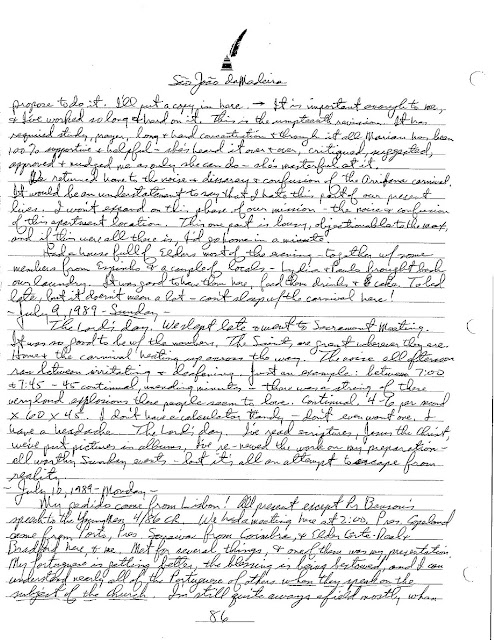 São João da Madeira
propose to do it. I'll put a copy in here. → It is important enough to me,
& I've worked so long & hard on it. This is the umpteenth revision. It has
required study, prayer, long & hard concentration & through it all Mariam has been
100% supportive & helpful - she's heard it over & over, critiqued, suggested,
approved & nudged me as only she can do - she's masterful at it.
We returned home to the noise & disarray & confusion of the carnival.
It would be an understatement to say that I hate this part of our present
lives. I won't expand on this phase of our mission - the noise & confusion
of this apartment location. This one part is lousy, objectionable to the max,
and if this were all there is, I'd go home in a minute.
Had a house full of Elders most of the evening - together w/ some
members from Espinho & a couple of locals - Lydia & Paula brought back
our laundry. It was good to have them here, feed them drinks & cake. To bed
late, but it doesn't mean a lot - can't sleep w/ the carnival here!
- July 9, 1989 - Sunday -
The Lord's day. We slept late & went to Sacrament Meeting.
It was so good to be w/ the members. The Saints are great wherever they are.
Home & the carnival heating up across the way. The noise all afternoon
ran between irritating & deafening. Just an example: between 7:00
& 7:45 - 45 continual, unending minutes - there was a string of these
very loud explosions these people seem to love. Continual 4-6 per second
x 60 x 45. I don't have a calculator handy - don't even want one. I
have a headache. The Lord's day - I've read scriptures, Jesus the Christ
we've put pictures in albums, I've re-newed the work on my preparation -
all worthy Sunday events - but it's all an attempt to escape from
reality.
- July 10, 1989 - Monday -
My pedido came from Lisbon! All present except Pr Benson's
speech to the Young Men 4/86 CR. We had a meeting here at 2:00, Pres. Copeland
came from Porto, Pres. from Coimbra, & Elders Corte-Real &
Bradford here & me. Met for several things, & one of them was my presentation.
My Portuguese is getting better, the blessing is being bestowed, and I can
understand nearly all of the Portuguese of others when they speak on the
subject of the church. I'm still quite aways afield mostly when
86